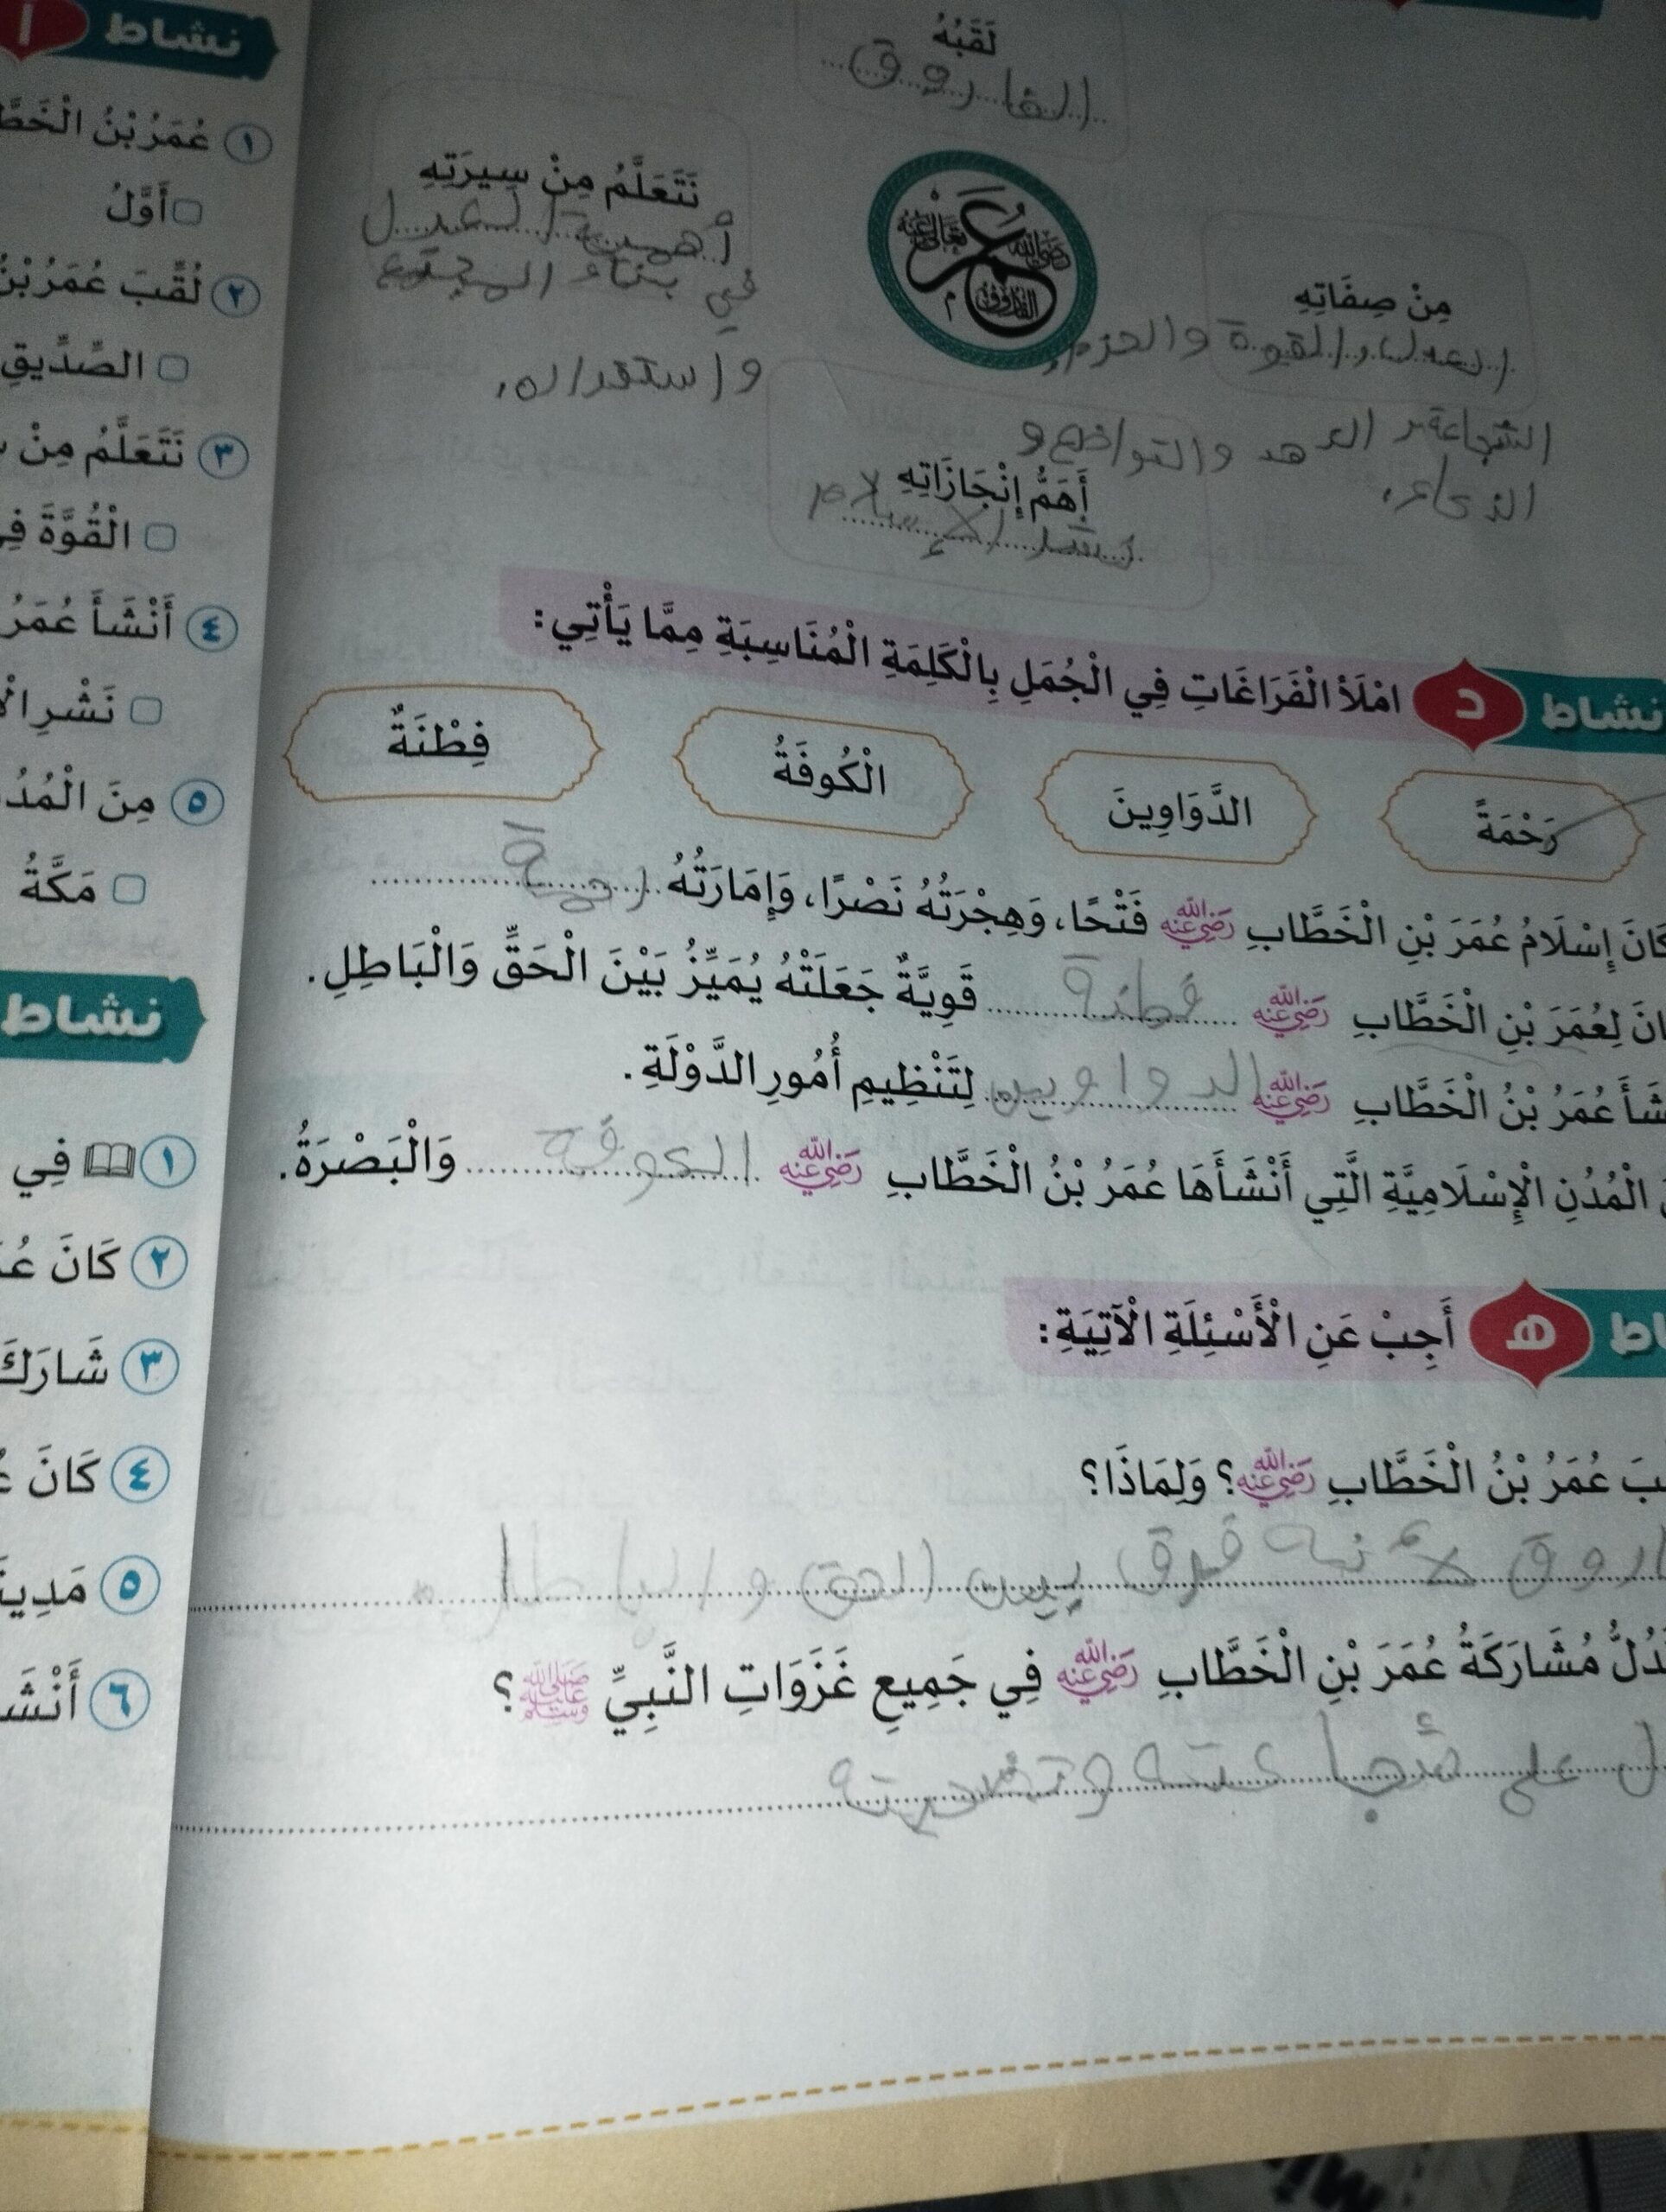 لَقَبُهُ
الفاروق
نَتَعَلَّمُ مِنْ سِيرَتِهِ
أهمية العدل
في بناء المجتمع
واستقراره.
مِنْ صِفَاتِهِ
العدل والقوة والحزم
الشجاعة الزهد والتواضع و
الذكاء.
عُمَرُ
الْفَارُوقُ
أَهَمُّ إِنْجَازَاتِهِ
نشر الإسلام
نشاط د امْلَأِ الْفَرَاغَاتِ فِي الْجُمَلِ بِالْكَلِمَةِ الْمُنَاسِبَةِ مِمَّا يَأْتِي:
رَحْمَةً الدَّوَاوِينَ الْكُوفَةُ فِطْنَةٌ
كَانَ إِسْلَامُ عُمَرَ بْنِ الْخَطَّابِ رَضِيَ اللَّهُ عَنْهُ فَتْحًا، وَهِجْرَتُهُ نَصْرًا، وَإِمَارَتُهُ رحمة
لِعُمَرَ بْنِ الْخَطَّابِ رَضِيَ اللَّهُ عَنْهُ فطنة قَوِيَّةٌ جَعَلَتْهُ يُمَيِّزُ بَيْنَ الْحَقِّ وَالْبَاطِلِ.
عُمَرُ بْنُ الْخَطَّابِ رَضِيَ اللَّهُ عَنْهُ الدواوين لِتَنْظِيمِ أُمُورِ الدَّوْلَةِ.
الْمُدُنِ الْإِسْلَامِيَّةِ الَّتِي أَنْشَأَهَا عُمَرُ بْنُ الْخَطَّابِ رَضِيَ اللَّهُ عَنْهُ الكوفة وَالْبَصْرَةُ.
هـ أَجِبْ عَنِ الْأَسْئِلَةِ الْآتِيَةِ:
عُمَرُ بْنُ الْخَطَّابِ رَضِيَ اللَّهُ عَنْهُ؟ وَلِمَاذَا؟
لأنه فرق بين الحق والباطل
مُشَارَكَةُ عُمَرَ بْنِ الْخَطَّابِ رَضِيَ اللَّهُ عَنْهُ فِي جَمِيعِ غَزَوَاتِ النَّبِيِّ ﷺ؟
على شجاعته وتضحيته
نشاط أ
١ عُمَرُ بْنُ
أَوَّلُ
٢ لُقِّبَ عُمَرُ بْنُ
الصِّدِّيقِ
٣ نَتَعَلَّمُ مِنْ
الْقُوَّةَ
٤ أَنْشَأَ عُمَرُ
نَشْرِ
٥ مِنَ
مَكَّةُ
نشاط
١ فِي
٢ كَانَ
٣ شَارَكَ
٤ كَانَ
٥
٦